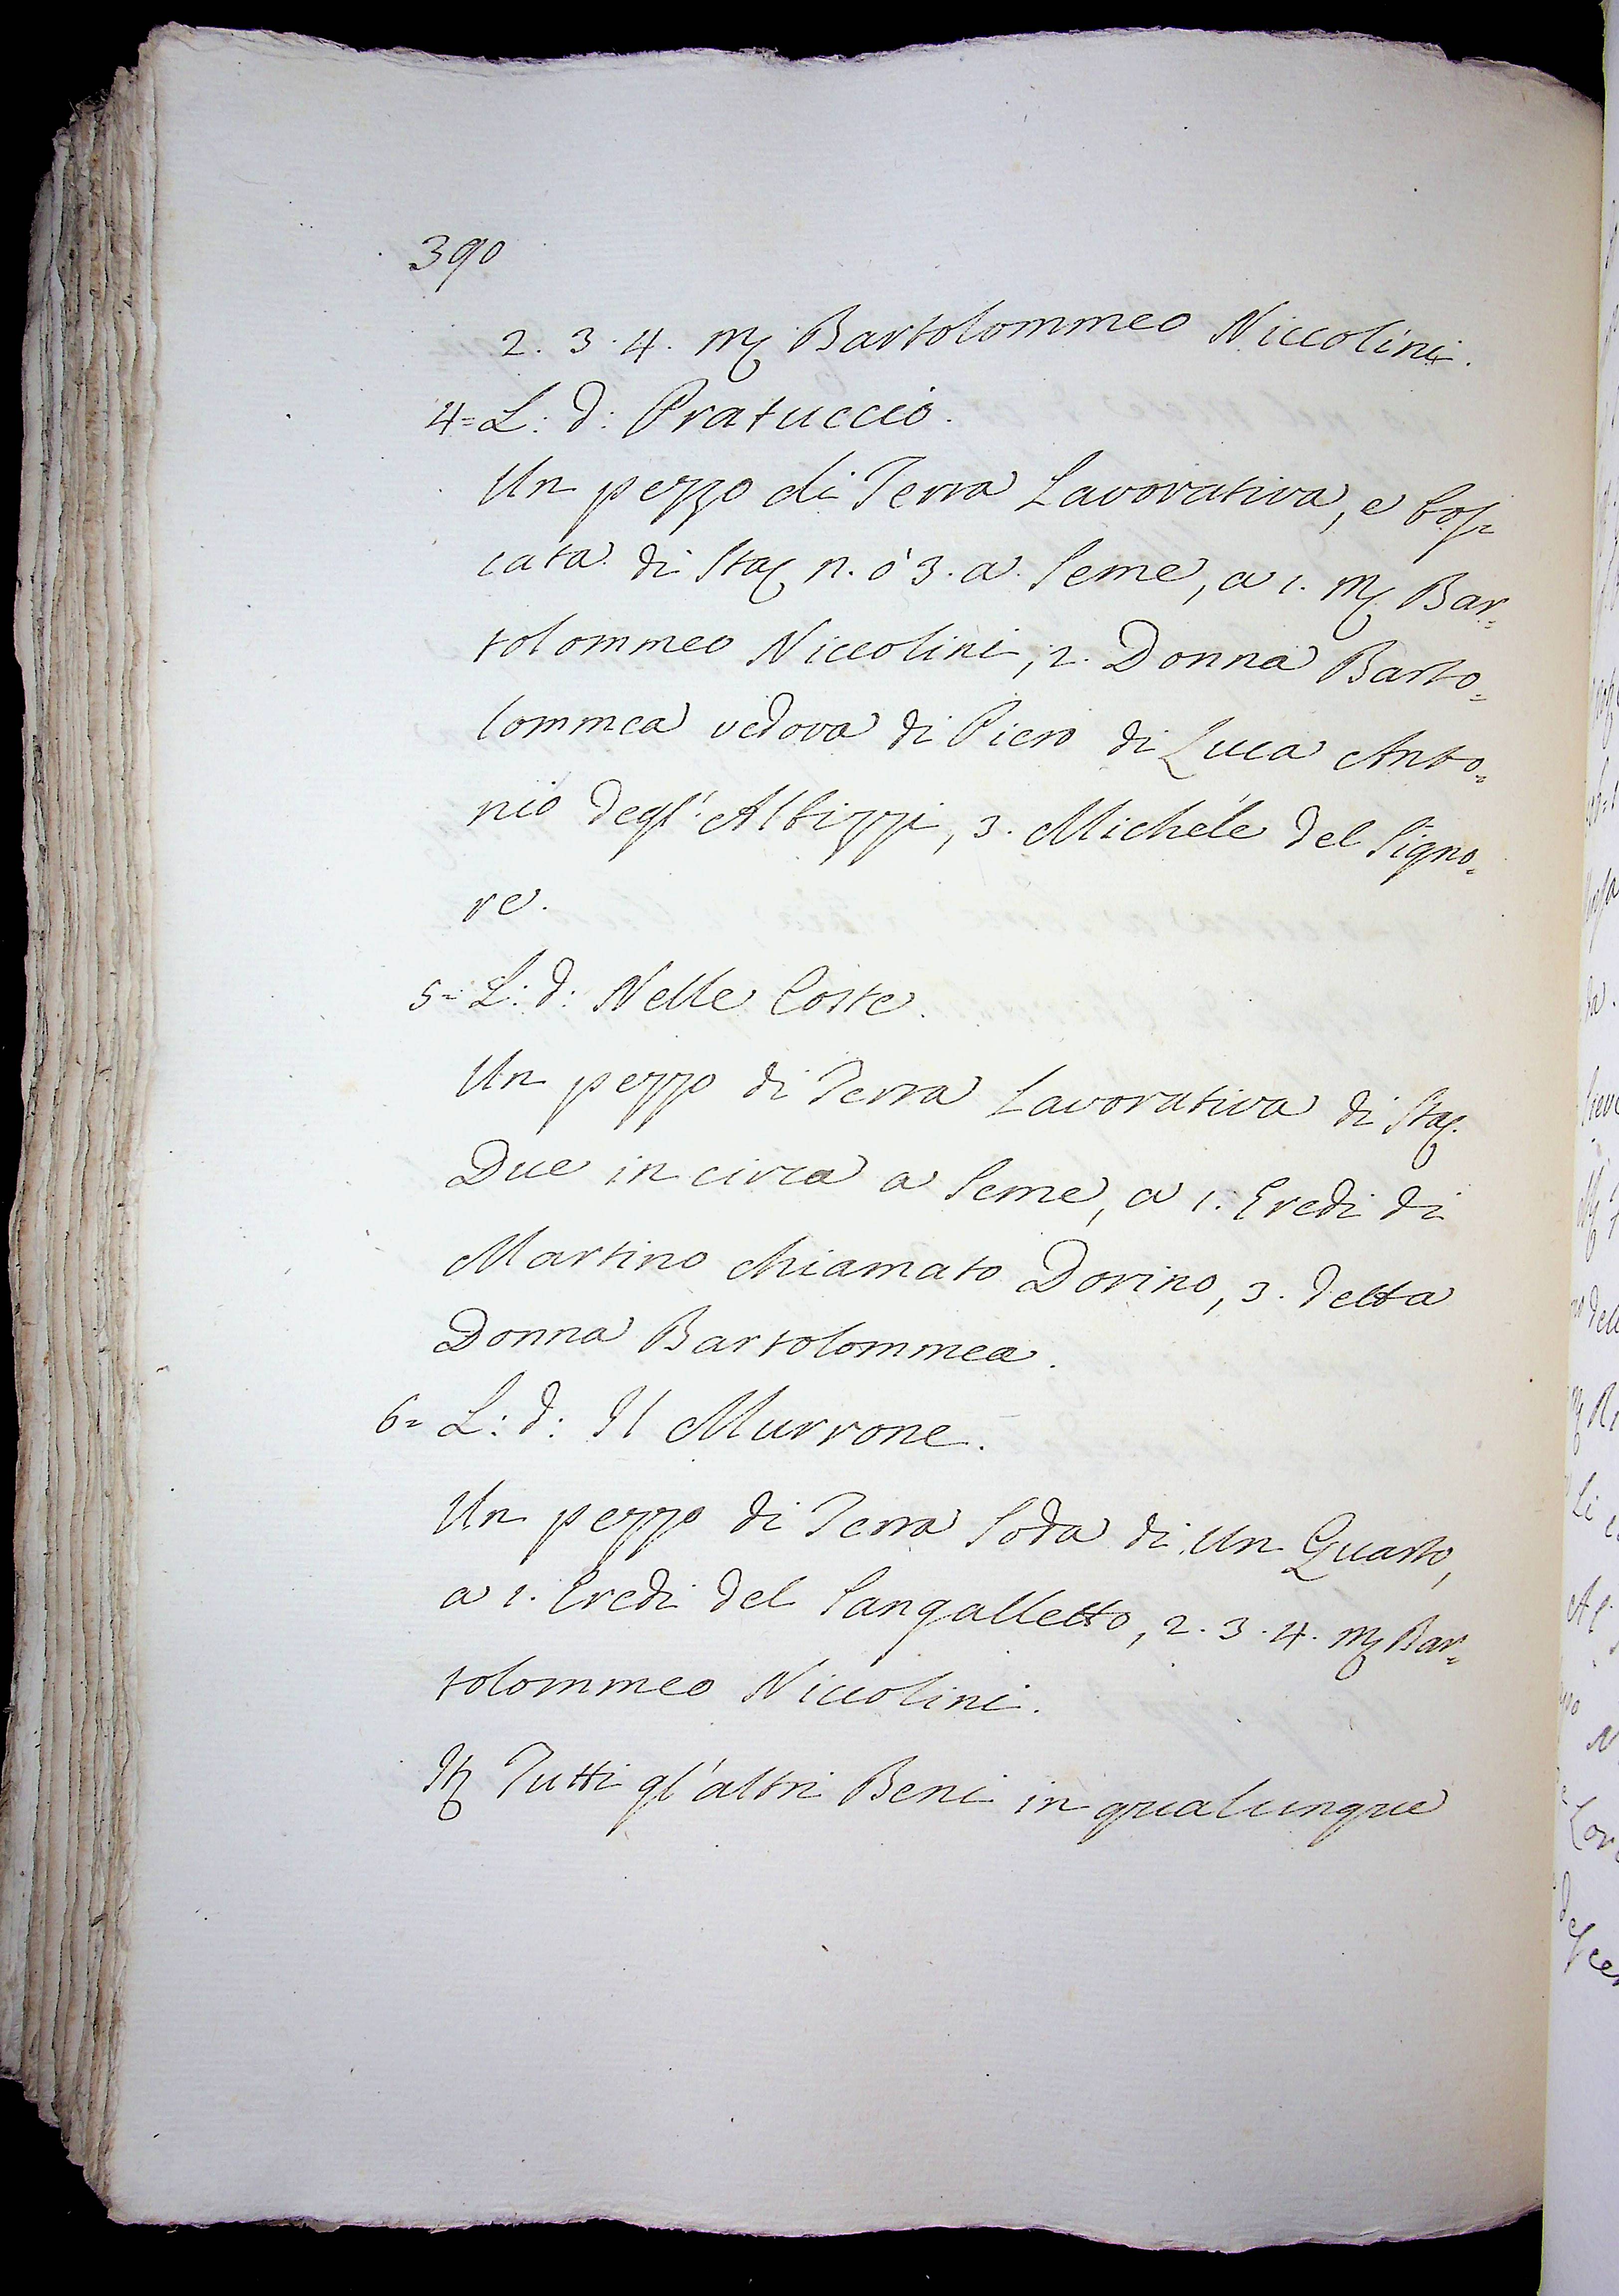 390
2. 3. 4. M. Bartolommeo Niccolini.
4= L: d: Pratuccio.
Un pezzo di Terra Lavorativa, e bos=
cata di Sta. n. o' 3. a Seme, a 1. M. Bar=
tolommeo Niccolini, 2. Donna Barto=
lommea vedova di Piero di Luca Anto=
nio degl' Albizzi, 3. Michele del Signo=
re.
5= L: d: Nelle Coste.
Un pezzo di Terra Lavorativa di Sta.
Due in circa a Seme, a 1. Eredi di
Martino chiamato Dorino, 3. detta
Donna Bartolommea.
6= L: d: Il Murrone.
Un pezzo di Terra Soda di Un Quarto,
a 1. Eredi del Sangalletto, 2. 3. 4. M. Bar=
tolommeo Niccolini.
It. Tutti gl'altri Beni in qualunque